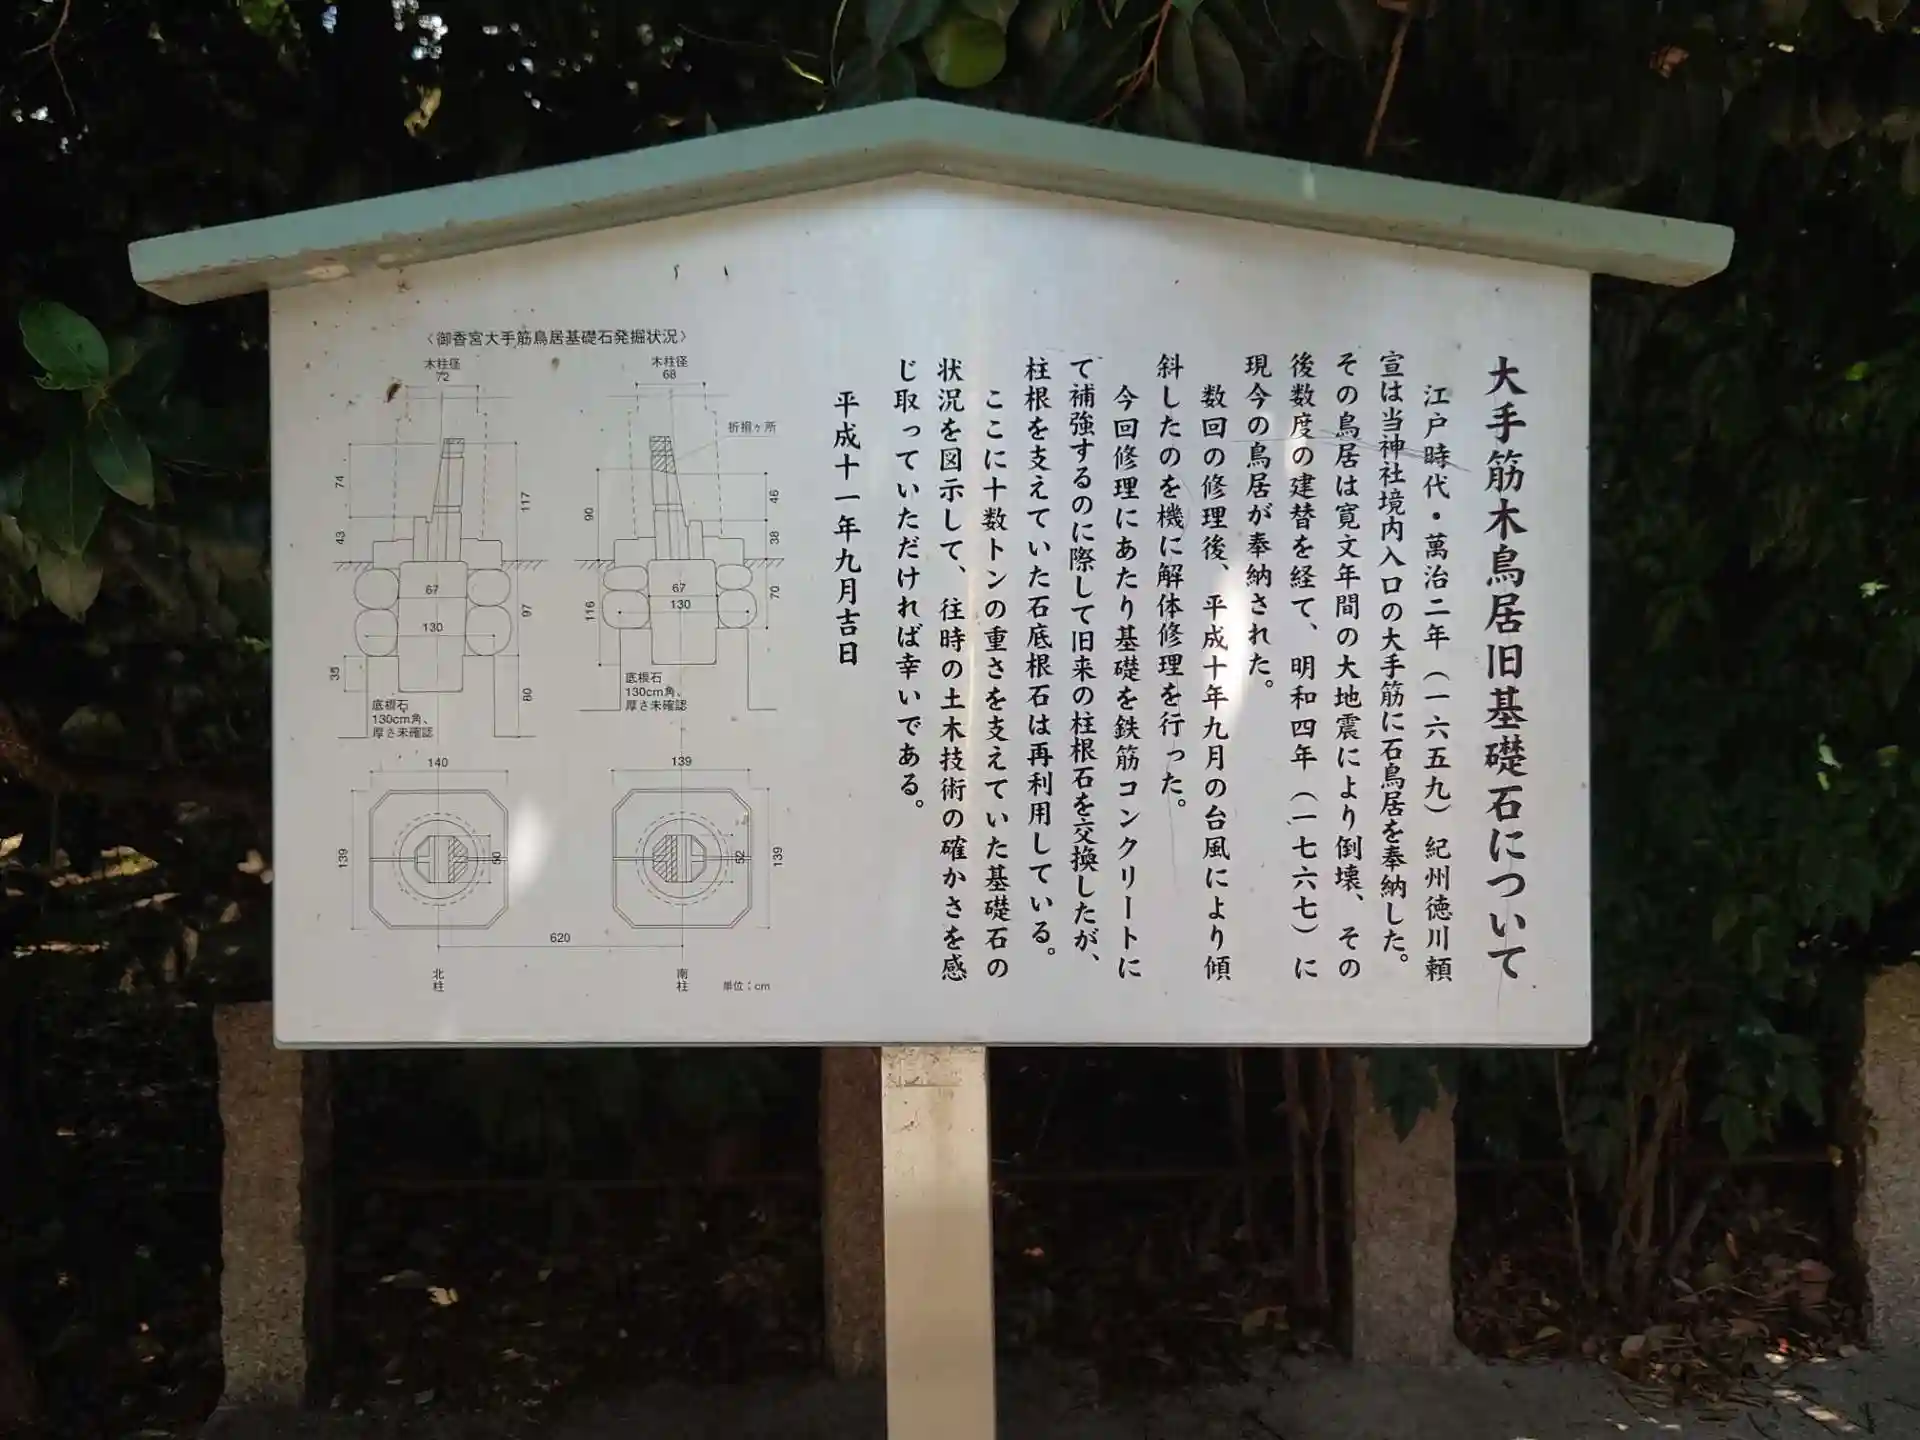 大手筋木鳥居旧基礎石について
江戸時代・萬治二年（一六五九）紀州徳川頼
宣は当神社境内入口の大手筋に石鳥居を奉納した。
その鳥居は寛文年間の大地震により倒壊、その
後数度の建替を経て、明和四年（一七六七）に
現今の鳥居が奉納された。
数回の修理後、平成十年九月の台風により傾
斜したのを機に解体修理を行った。
今回修理にあたり基礎を鉄筋コンクリートに
て補強するのに際して旧来の柱根石を交換したが、
柱根を支えていた石底根石は再利用している。
ここに十数トンの重さを支えていた基礎石の
状況を図示して、往時の土木技術の確かさを感
じ取っていただければ幸いである。
平成十一年九月吉日
〈御香宮大手筋鳥居基礎石発掘状況〉
木柱径
72
74
43
117
67
130
97
35
80
底根石
130cm角、
厚さ未確認
木柱径
68
折損ヶ所
90
46
38
67
130
116
70
底根石
130cm角、
厚さ未確認
140
139
50
139
52
139
620
北柱
南柱
単位：cm